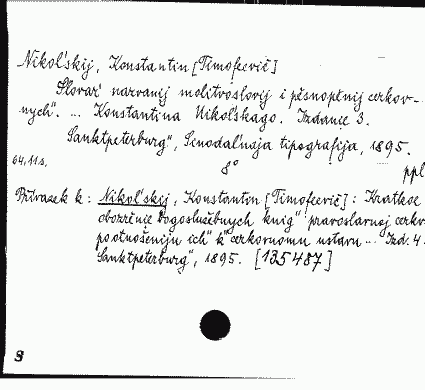 Nikol'skij, Konstantin [Timofeevič]
Slovar' nazvanij molitvoslovij i pěsnopěnij cerkov-
nych". ... Konstantina Nikol'skago. Izdanie 3.
Sanktpeterburg", Sinodal'naja tipografija, 1895.
64,11s, 8° ppl
Přívazek k: Nikol'skij, Konstantin [Timofeevič]: Kratkoe
obozrěnie bogoslužebnych knig" pravoslavnoj cerkv
po otnošeniju ich" k" cerkovnomu ustavu ... Izd. 4.
Sanktpeterburg", 1895. [135487]